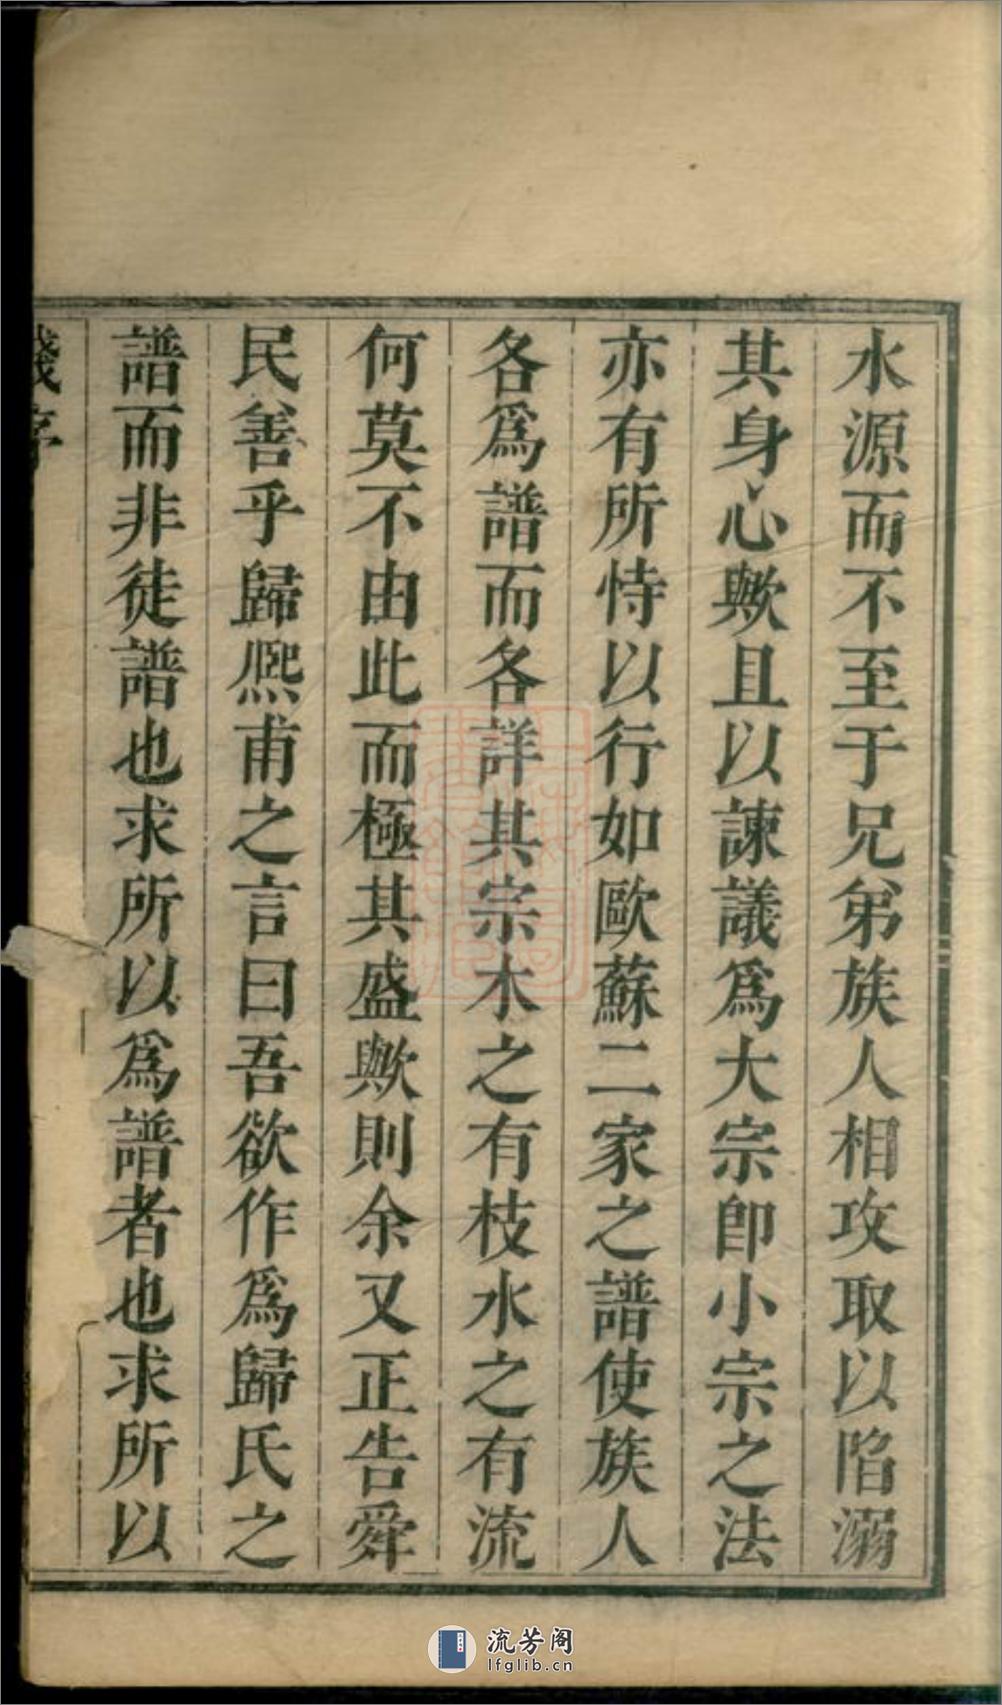 水源而不至于兄弟族人相攻取以陷溺
其身心歟且以諫議爲大宗卽小宗之法
亦有所恃以行如歐蘇二家之譜使族人
各爲譜而各詳其宗木之有枝水之有流
何莫不由此而極其盛歟則余又正告舜
民善乎歸熙甫之言曰吾欲作爲歸氏之
譜而非徒譜也求所以爲譜者也求所以
流芳阁
lfglib.cn